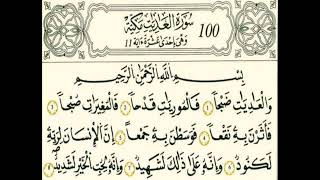 سورة العاديات مكية
وهي إحدى عشرة آية ١١
100
بِسْمِ اللَّهِ الرَّحْمَنِ الرَّحِيمِ
وَالْعَادِيَاتِ ضَبْحًا ١ فَالْمُورِيَاتِ قَدْحًا ٢ فَالْمُغِيرَاتِ صُبْحًا ٣
فَأَثَرْنَ بِهِ نَقْعًا ٤ فَوَسَطْنَ بِهِ جَمْعًا ٥ إِنَّ الْإِنْسَانَ لِرَبِّهِ
لَكَنُودٌ ٦ وَإِنَّهُ عَلَى ذَلِكَ لَشَهِيدٌ ٧ وَإِنَّهُ لِحُبِّ الْخَيْرِ لَشَدِيدٌ ٨